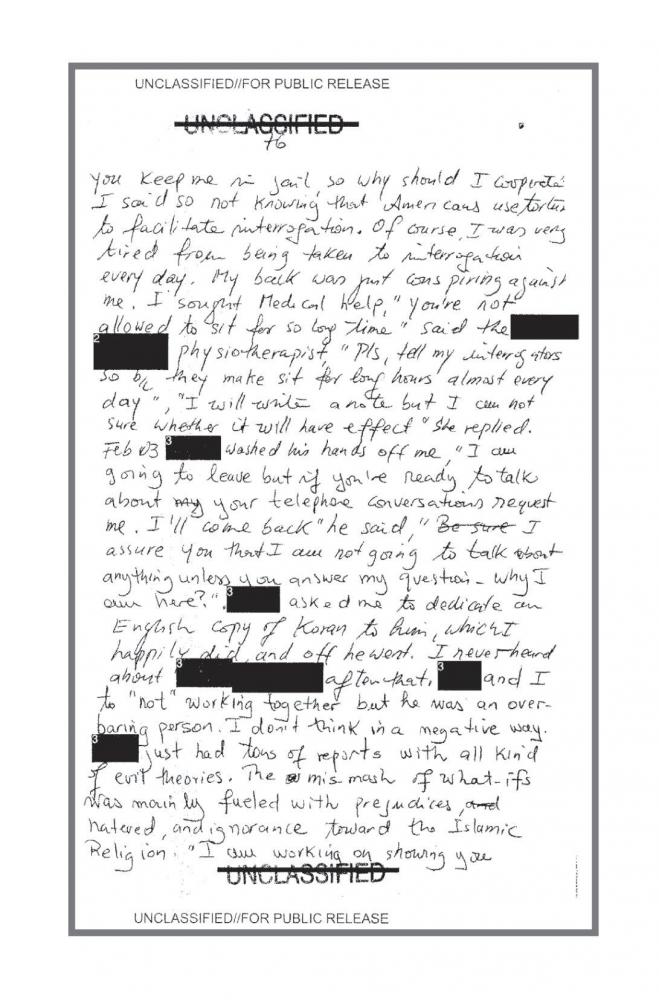 UNCLASSIFIED//FOR PUBLIC RELEASE
UNCLASSIFIED
76
you keep me in jail, so why should I cooperate
I said so not knowing that Americans use torture
to facilitate interrogation. Of course, I was very
tired from being taken to interrogation
every day. My back was just conspiring against
me. I sought Medical help, "you're not
allowed to sit for so long time" said the
2
physiotherapist, "Pls, tell my interrogators
so b/c they make sit for long hours almost every
day", "I will write a note but I am not
sure whether it will have effect" She replied.
Feb 03 3 washed his hands off me, "I am
going to leave but if you're ready to talk
about my your telephone conversations request
me. I'll come back" he said, " Be sure I
assure you that I am not going to talk about
anything unless you answer my question - why I
am here?". 3 asked me to dedicate an
English copy of Koran to him, which I
happily did, and off he went. I never heard
about 3 after that. 3 and I
to "not" working together but he was an over-
baring person. I don't think in a negative way.
3 just had tons of reports with all kind
of evil theories. The mis mash of what-ifs
was mainly fueled with prejudices, and
hatered, and ignorance toward the Islamic
Religion. "I am working on showing you
UNCLASSIFIED
UNCLASSIFIED//FOR PUBLIC RELEASE